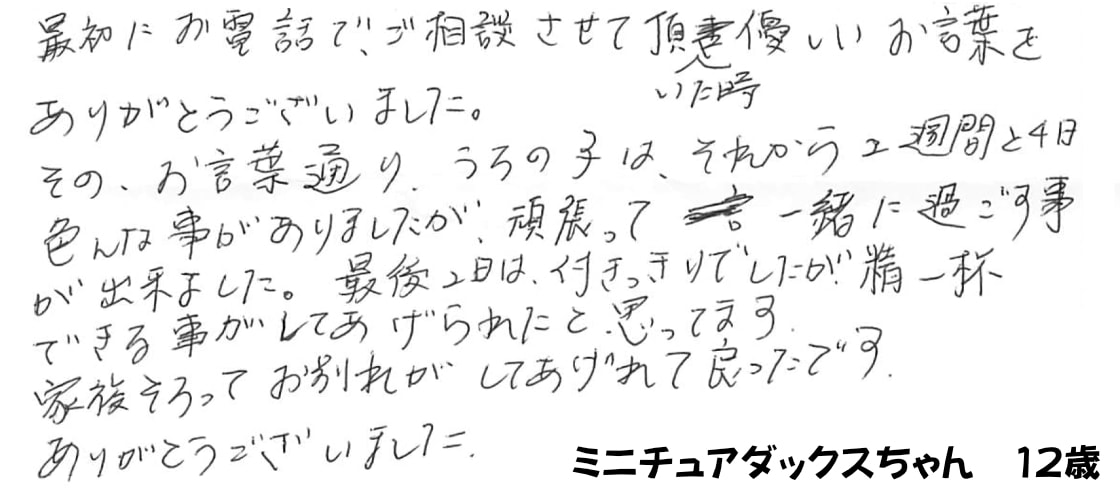 最初にお電話で、ご相談させて頂いた時優しいお言葉を
ありがとうございました。
その、お言葉通り、うちの子は、それから2週間と4日
色んな事がありましたが、頑張って 一緒に過ごす事
が出来ました。最後2日は、付きっきりでしたが精一杯
できる事がしてあげられたと思ってます。
家族そろってお別れが してあげれて良ったです。
ありがとうございました。
ミニチュアダックスちゃん 12歳